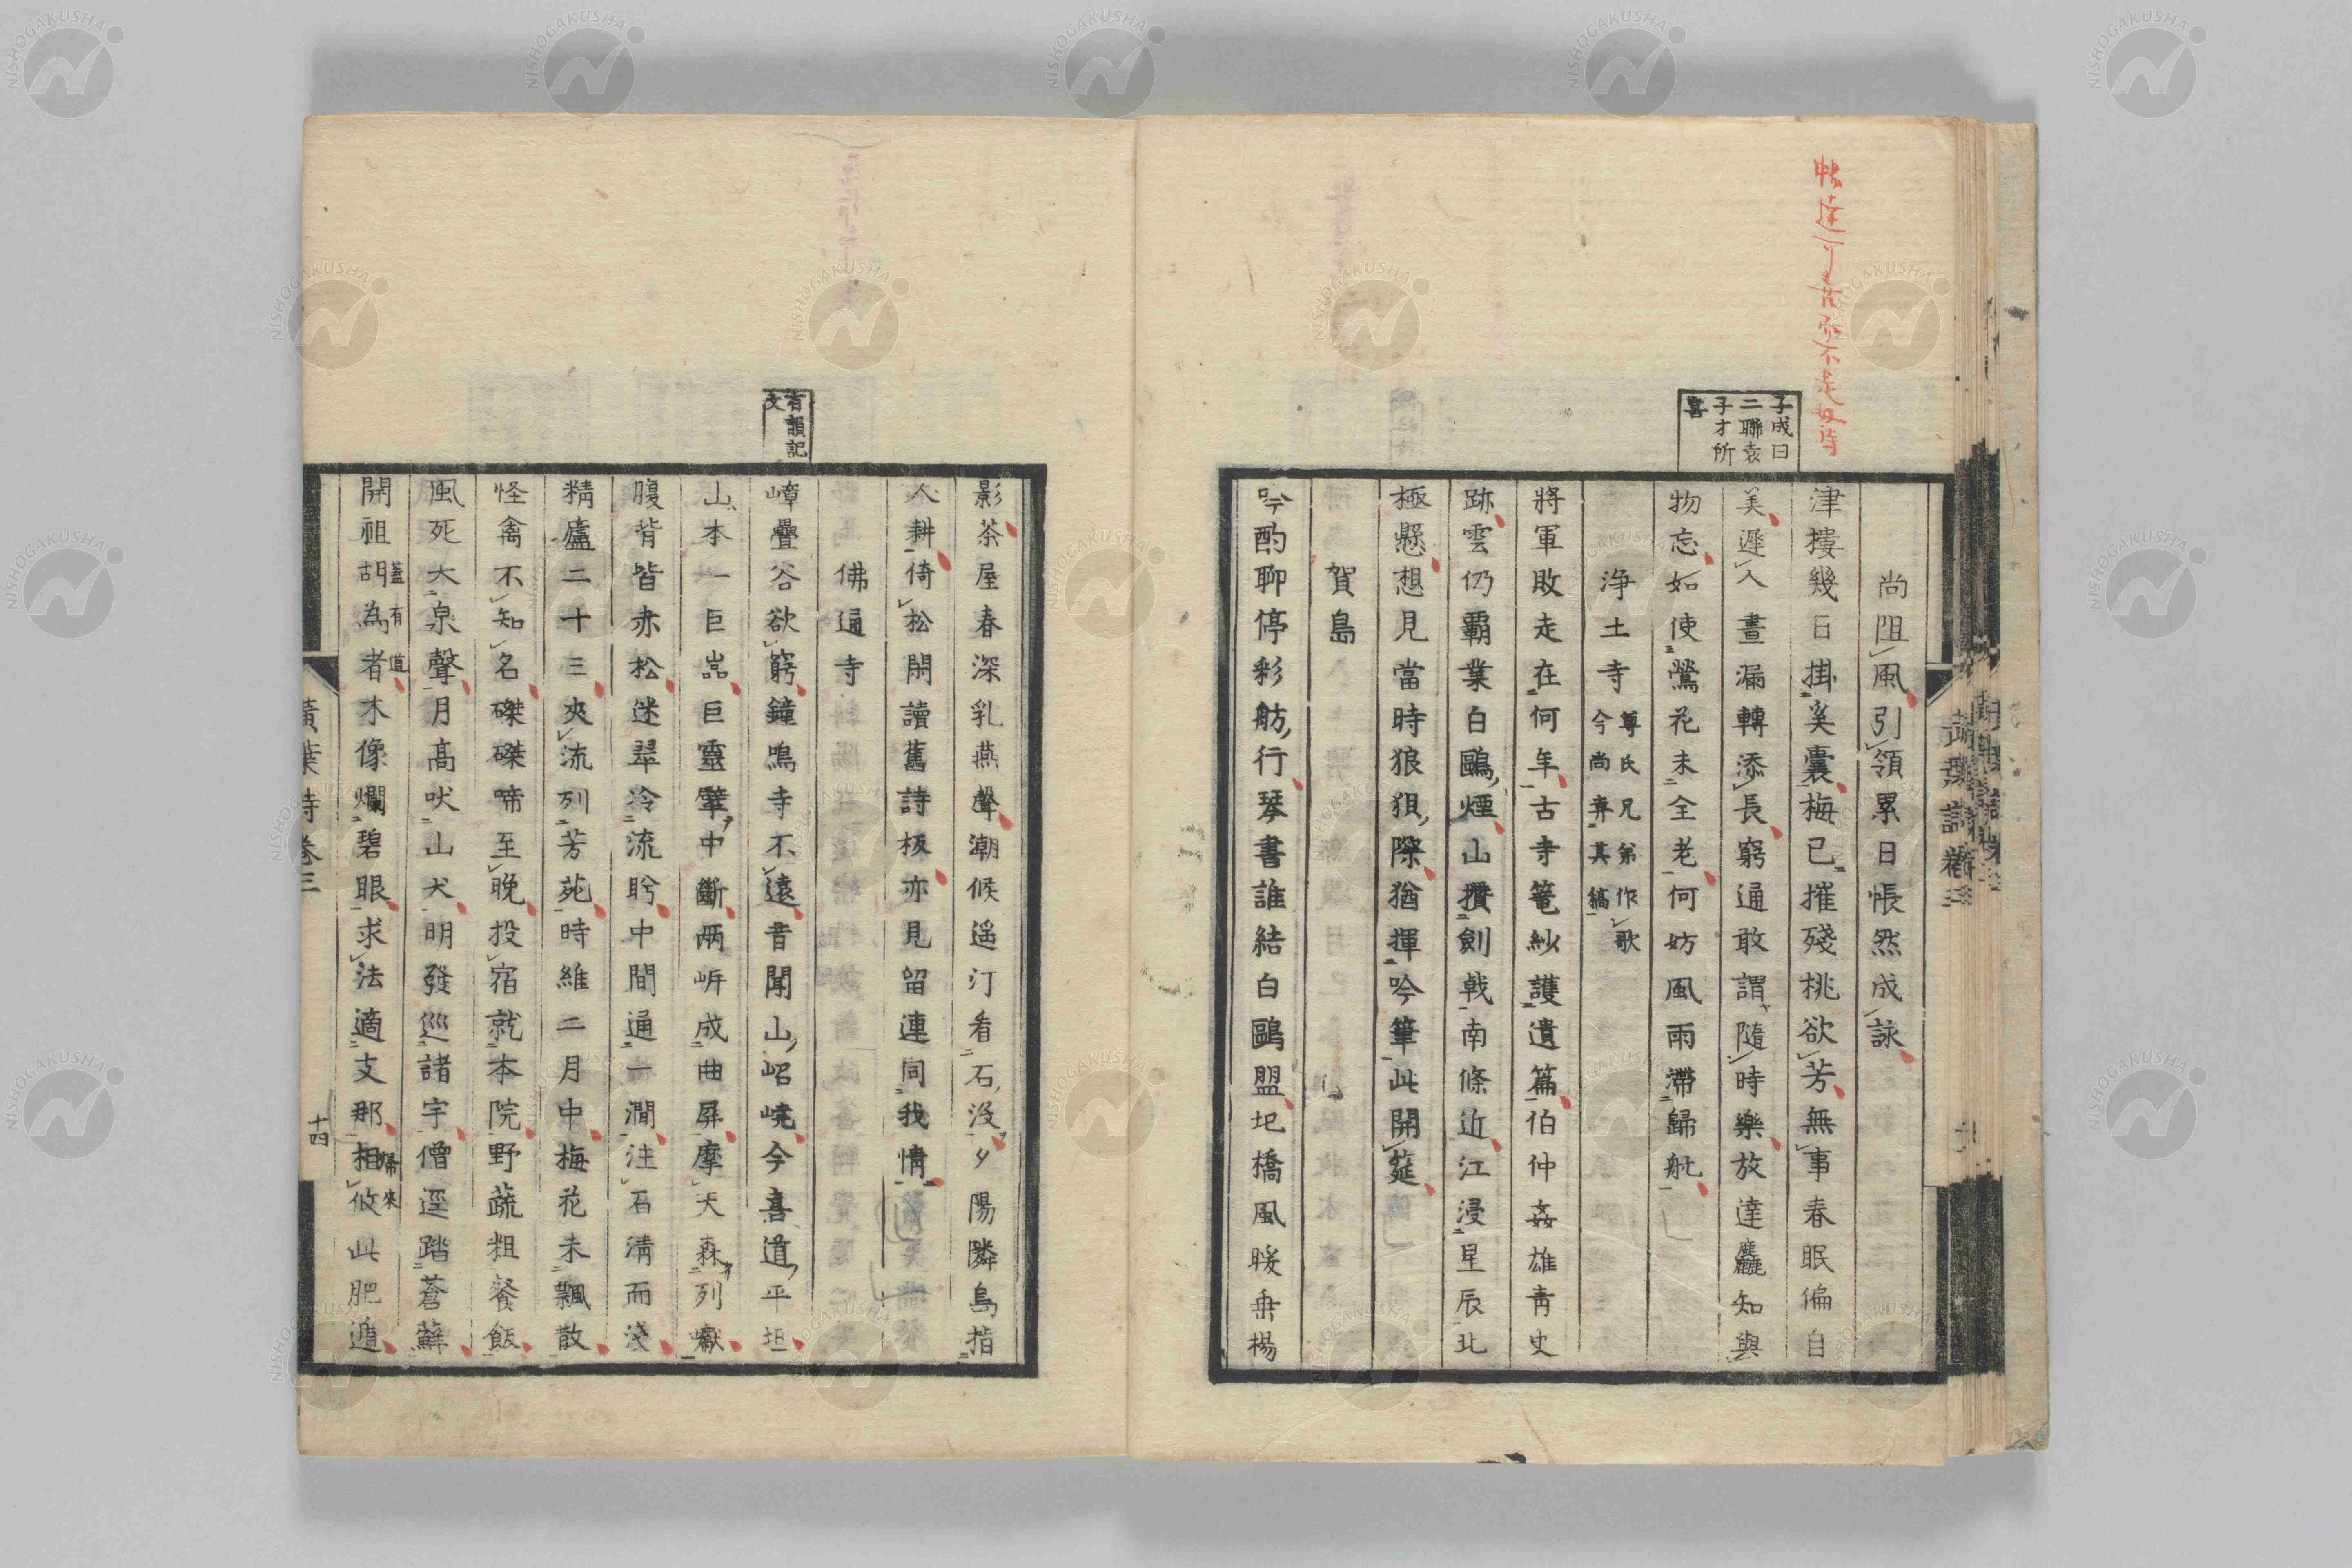 子成曰
二聯袁
子才所
喜
尚阻風引領累日悵然成詠
津樓幾日掛奚囊梅已摧殘桃欲芳無事春眠偏自
美遲人晝漏轉添長窮通敢謂隨時樂放達麤知與
物忘如使鶯花未全老何妨風雨滯歸航
淨土寺
尊氏兄弟作歌
今尚弆其稿
將軍敗走在何年古寺篭紗護遺篇伯仲姦雄靑史
跡雲仍霸業白鷗煙山攢劍戟南條近江浸星辰北
極懸想見當時狼狽際猶揮吟筆此開筵
賀島
吟酌聊停彩舫行琴書誰結白鷗盟圯橋風暖垂楊
影茶屋春深乳燕聲潮候遥汀看石没夕陽隣島指
人耕倚松閑讀舊詩板亦見留連同我情
佛通寺
有韻記
文
嶂疊谷欲窮鐘鳴寺不遠昔聞山岧嶢今喜道平坦
山本一巨嵓巨靈擘中斷兩岍成曲屏摩天森列巘
腹背皆赤松迷翠冷流盻中間通一澗注石淸而淺
精廬二十三夾流列芳苑時維二月中梅花未飄散
怪禽不知名磔磔啼至晚投宿就本院野蔬粗餐飯
風死大泉聲月高吠山犬明發巡諸宇僧逕踏蒼蘚
開祖胡為者木像爛碧眼求法適支那相攸此肥遁
蓋有道
歸來
黃葉詩卷三
十四